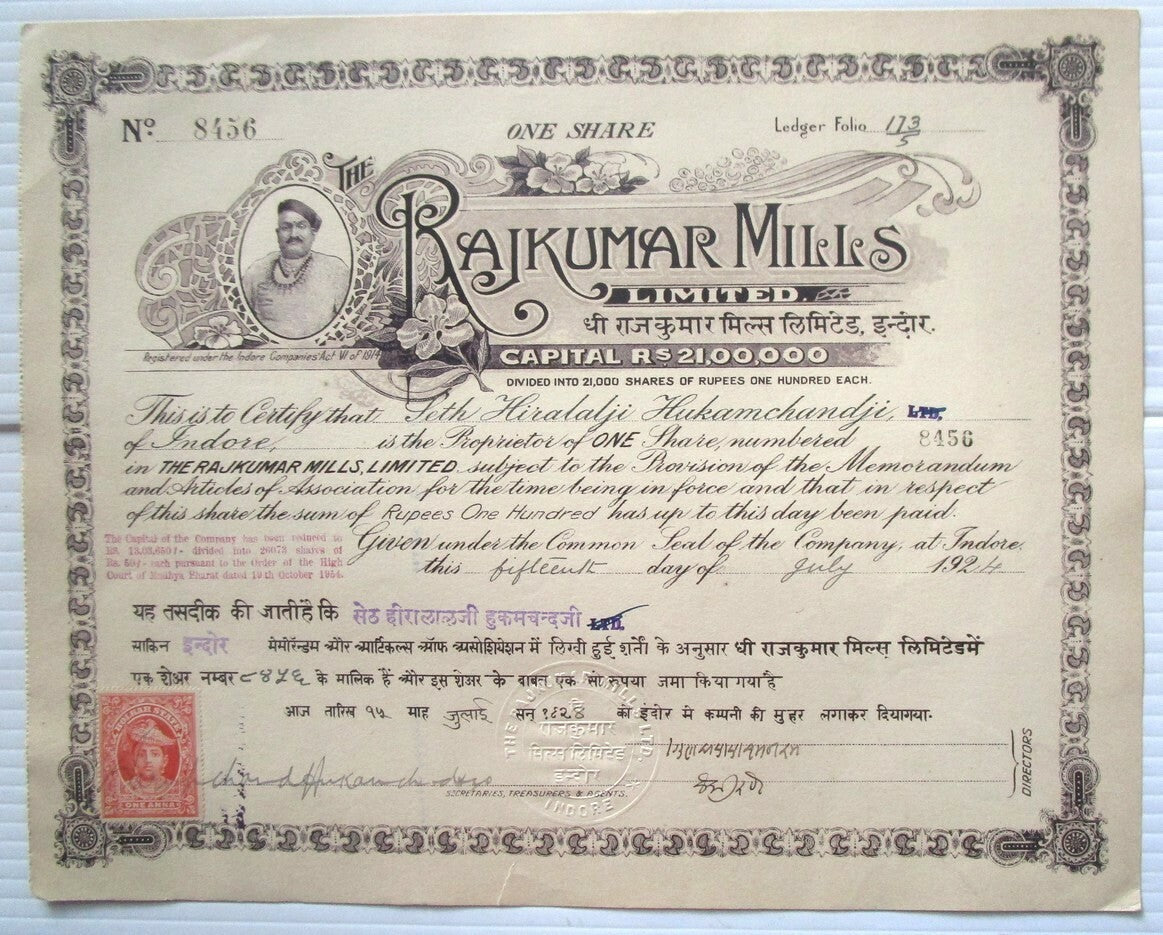 Nº 8456 ONE SHARE Ledger Folio 173/5
THE
RAJKUMAR MILLS
LIMITED.
धी राजकुमार मिल्स लिमिटेड, इन्दौर.
Registered under the Indore Companies' Act VI of 1914
CAPITAL RS 21,00,000
DIVIDED INTO 21,000 SHARES OF RUPEES ONE HUNDRED EACH.
This is to Certify that Seth Hiralalji Hukamchandji, LTD.
of Indore, is the Proprietor of ONE Share, numbered 8456
in THE RAJKUMAR MILLS, LIMITED subject to the Provision of the Memorandum
and Articles of Association for the time being in force and that in respect
of this share the sum of Rupees One Hundred has up to this day been paid.
The Capital of the Company has been reduced to
RS. 13,03,650/- divided into 26073 shares of
Rs. 50/- each pursuant to the Order of the High
Court of Madhya Bharat dated 19th October 1954.
Given under the Common Seal of the Company, at Indore.
this fifteenth day of July 1924
यह तसदीक की जाती है कि सेठ हीरालालजी हुकमचन्दजी LTD.
साकिन इन्दोर मेमोरॅन्डम और आर्टिकल्स ऑफ असोशियेशन में लिखी हुई शर्तो के अनुसार धी राजकुमार मिल्स लिमिटेडमें
एक शेअर नम्बर ८४५६ के मालिक हैं और इस शेअर के बाबत एक सो रुपया जमा किया गया है
आज तारिख १५ माह जुलाई सन १९२४ को इंदोर मे कम्पनी की मुहर लगाकर दियागया.
HOLKAR STATE
ONE ANNA
THE RAJKUMAR MILLS LTD.
राजकुमार
मिल्स लिमिटेड
इन्दौर
INDORE
SECRETARIES, TREASURERS & AGENTS.
DIRECTORS